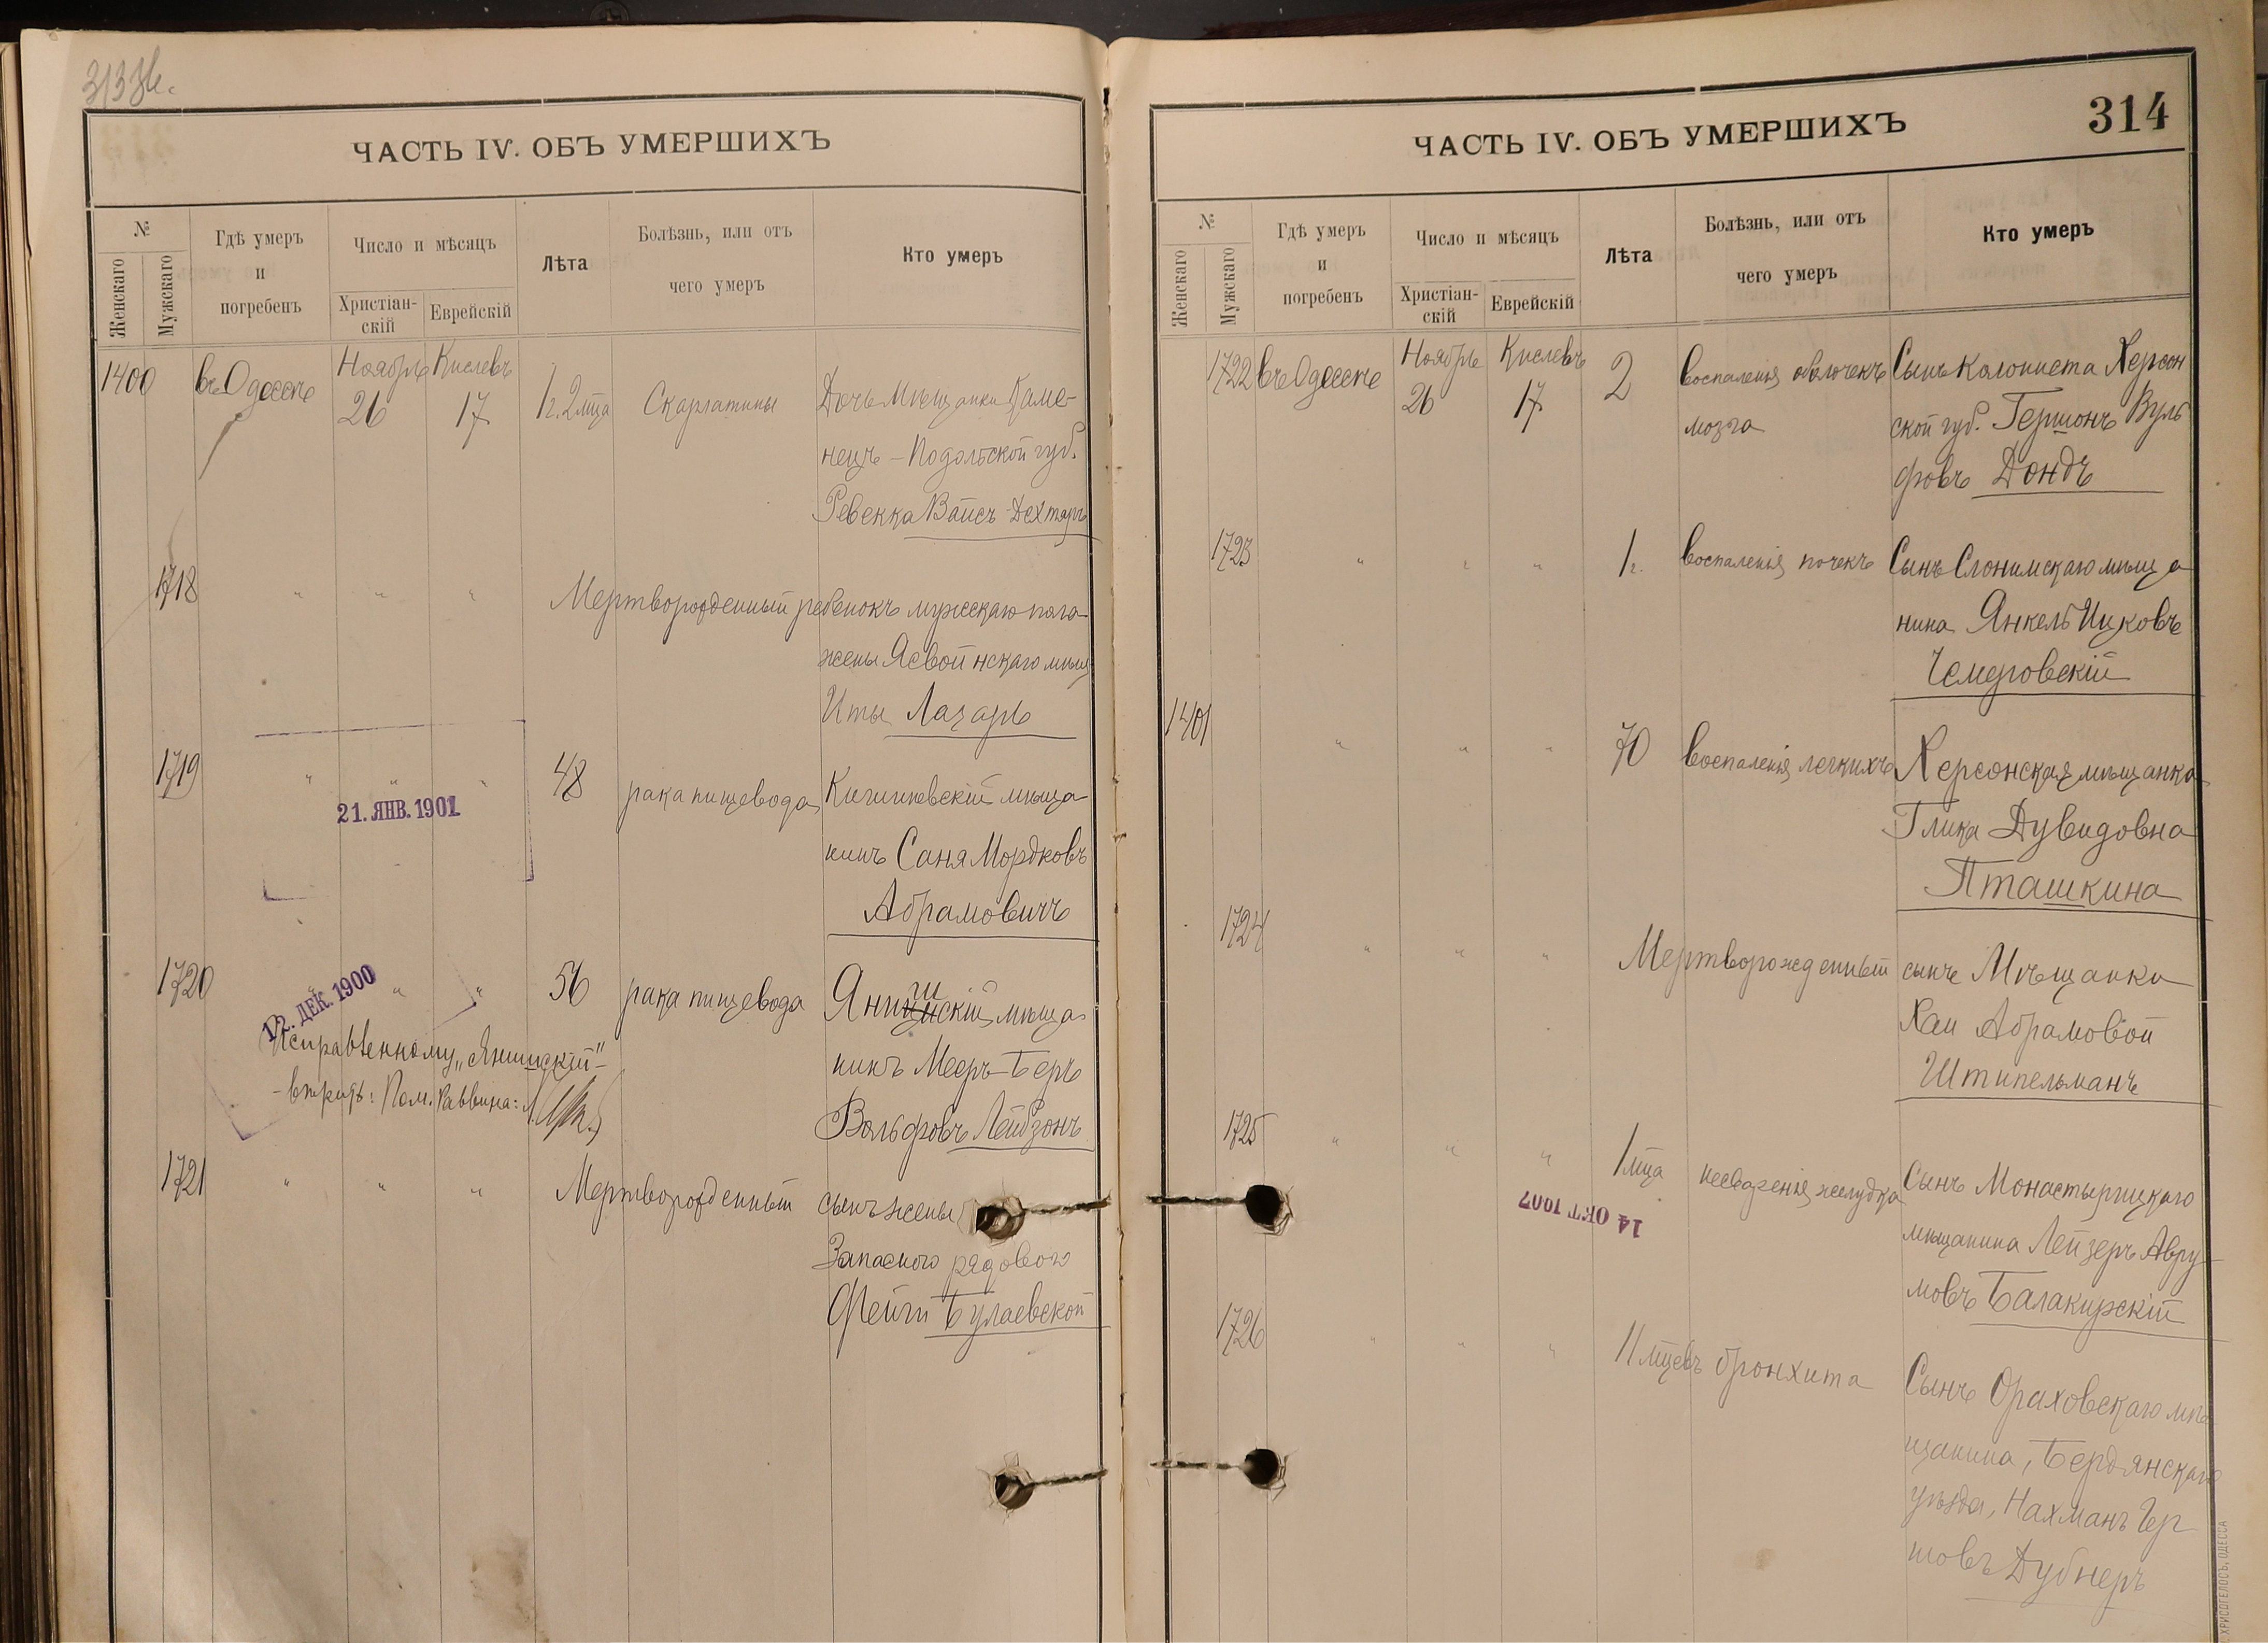 313 об.
ЧАСТЬ IV. ОБЪ УМЕРШИХЪ
№
Женскаго
Мужскаго
Гдѣ умеръ
и
погребенъ
Число и мѣсяцъ
Христіан-
скій
Еврейскій
Лѣта
Болѣзнь, или отъ
чего умеръ
Кто умеръ
1400 въ Одессѣ Ноябрь 26 Кислевъ 17 1 г. 2 мца Скарлатины Дочь Мѣщанки Каме-
нецъ-Подольской губ.
Ревекка Вайсъ-Дехтярь
1718 " " " Мертворожденный ребенокъ мужскаго пола
жены Ясвойнскаго мѣщ.
Иты Лазарь
1719 " " " 48 рака пищевода Кишиневскій мѣща
нинъ Саня Мордковъ
Абрамовичъ
21. ЯНВ. 1901
1720 " " " 56 рака пищевода Янишскій мѣща
нинъ Мееръ-Беръ
Вольфовъ Лейбзонъ
12. ДЕК. 1900
Исправленному „Янишскій"-
-вѣрить: Пом. Раввина:
1721 " " " Мертворожденный сынъ жены
Запасного рядового
Фейги Булаевской
314
ЧАСТЬ IV. ОБЪ УМЕРШИХЪ
№
Женскаго
Мужскаго
Гдѣ умеръ
и
погребенъ
Число и мѣсяцъ
Христіан-
скій
Еврейскій
Лѣта
Болѣзнь, или отъ
чего умеръ
Кто умеръ
1722 въ Одессѣ Ноябрь 26 Кислевъ 17 2 воспаленія оболочекъ мозга Сынъ колониста Херсон
ской губ. Гершонъ Вуль
фовъ Дондъ
1723 " " " 1 г. воспаленія почекъ Сынъ Слонимскаго мѣща
нина Янкель Ицковъ
Чемеровскій
1401 " " " 70 воспаленія легкихъ Херсонская мѣщанка
Глика Дувидовна
Пташкина
1724 " " " Мертворожденный сынъ Мѣщанки
Хаи Абрамовой
Штипельманъ
1725 " " " 1 мца несваренія желудка Сынъ Монастырицкаго
мѣщанина Лейзеръ Авру
мовъ Балакирскій
14 ОКТ 1907
1726 " " " 11 мцевъ бронхита Сынъ Ораховскаго мѣ
щанина, Бердянскаго
уѣзда, Нахманъ Гер
шовъ Дубнеръ
ХРИСОГЕЛОСЪ, ОДЕССА